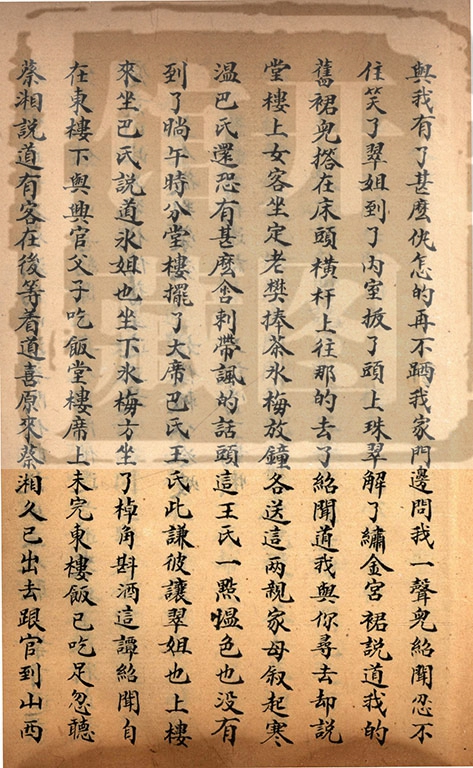 與我有了甚麽仇怎的再不跴我家門邊問我一聲兒紹聞忍不
住笑了翠姐到了內室扳了頭上珠翠解了繡金宮裙說道我的
舊裙兒搭在床頭橫杆上往那的去了紹聞道我與你尋去却說
堂樓上女客坐定老樊捧茶氷梅放鐘各送這两親家母叙起寒
温巴氏還恐有甚麽含刺帶諷的話頭這王氏一點愠色也没有
到了晌午時分堂樓擺了大席巴氏王氏此謙彼讓翠姐也上樓
來坐巴氏說道氷姐也坐下氷梅方坐了棹角斟酒這譚紹聞自
在東樓下與興官父子吃飯堂樓席上未完東樓飯已吃足忽聽
蔡湘說道有客在後等着道喜原來蔡湘久已出去跟官到山西